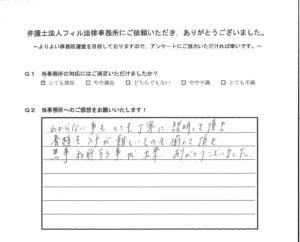 弁護士法人フィル法律事務所にご依頼いただき、ありがとうございました。
～よりよい事務所運営を目指しておりますので、アンケートにご協力いただければ幸いです。～
Q1 当事務所の対応にはご満足いただけましたか？
☑ とても満足 □ やや満足 □ どちらでもない □ やや不満 □ とても不満
Q2 当事務所へのご感想をお願いいたします！
わからない事もとても丁寧に説明して頂き
書類も入手が難しいものも揃えて頂き
無事相続する事が出来、ありがとうございました。